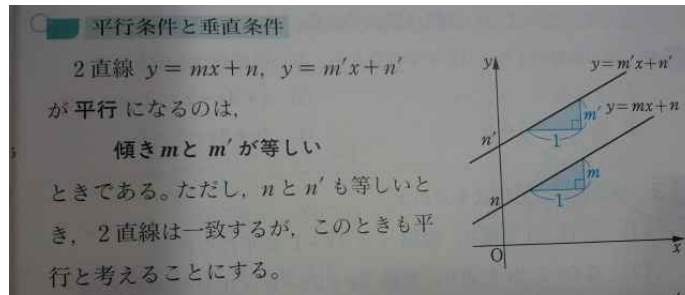 平行条件と垂直条件
2直線 y = mx + n, y = m′x + n′
が平行になるのは,
傾きmとm′が等しい
ときである。ただし, nとn′も等しいと
き, 2直線は一致するが, このときも平
行と考えることにする。
y
y=m′x+n′
m′
y=mx+n
n′
1
m
n
1
O
x